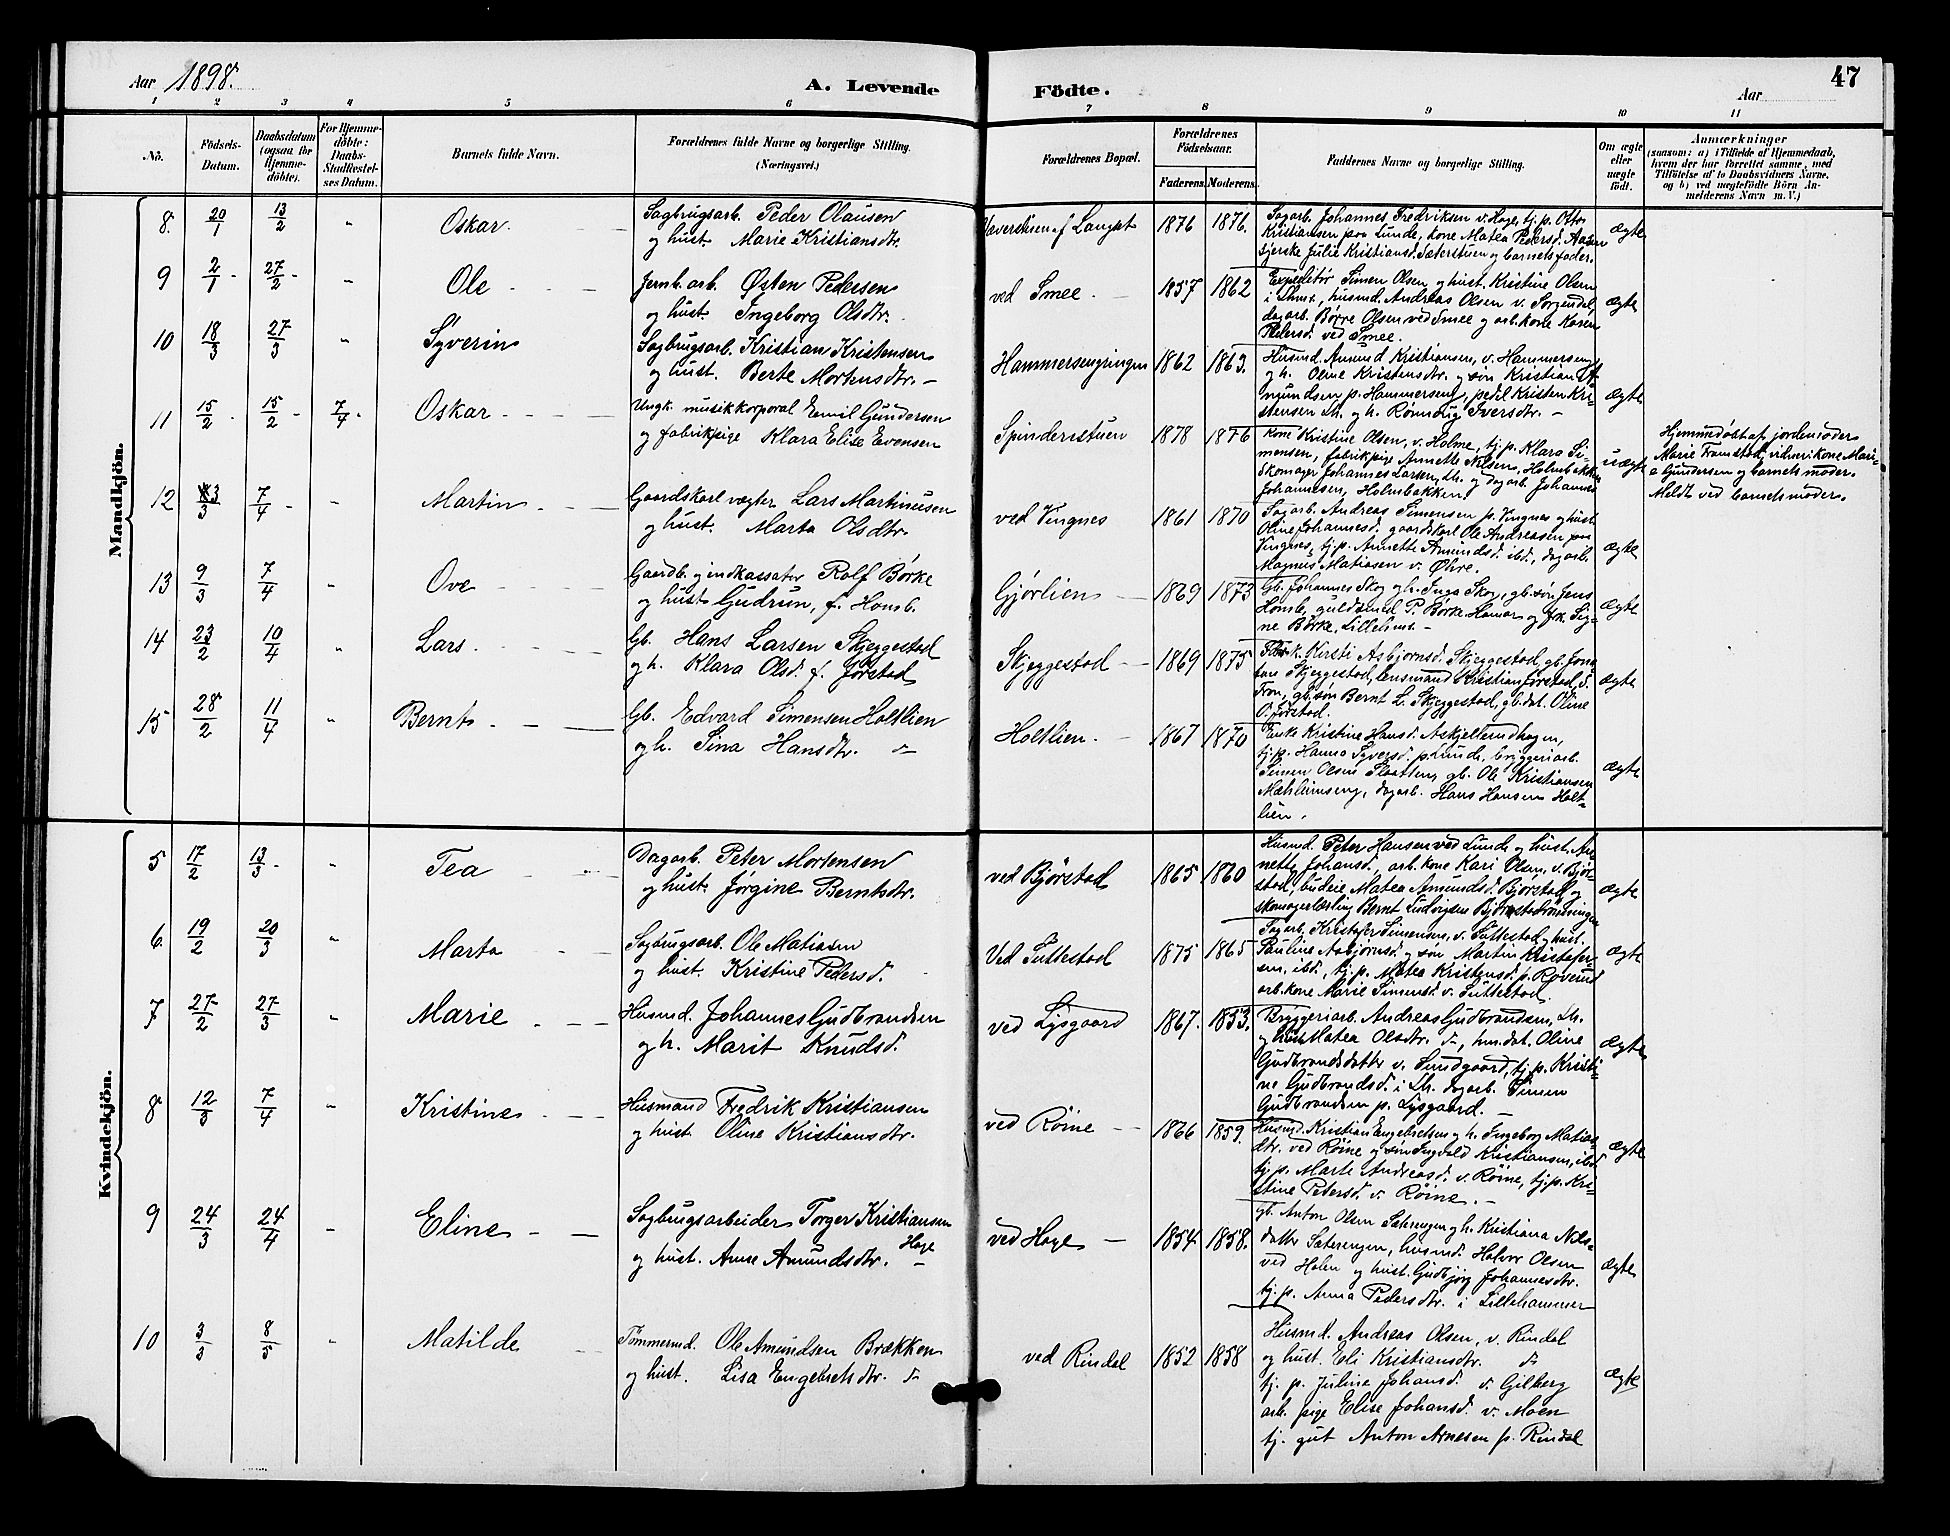 Aar 1898.
A. Levende Födte.
Aar
47
1 2 3 4 5 6 7 8 9 10 11
No.
Födsels-Datum.
Daabsdatum (ogsaa for Hjemme-döbte).
For Hjemme-döbte: Daabs-Stadfæstel-ses Datum.
Barnets fulde Navn.
Forældrenes fulde Navne og borgerlige Stilling. (Næringsvei.)
Forældrenes Bopæl.
Forældrenes Födselsaar.
Faderens. Moderens.
Faddernes Navne og borgerlige Stilling.
Om ægte eller uægte födt.
Anmærkninger
(saasom: a) i Tilfælde af Hjemmedaab,
hvem der har forrettet samme, med
Tilföielse af to Daabsvidners Navne,
og b) ved uægtefödte Börn An-
melderens Navn m. V.)
Mandkjön.
8. 20/1 13/2 " Oskar.
Sagbrugsarb. Peder Olausen
og hust. Marie Kristiansdtr.
af Langset 1876 1876.
Sagarb. Johannes Fredriksen v. Hage, tj. p. Otto
Kristiansen paa Lunde, kone Matea Pedersd. Aasen
Julie Kristiansd. Sæterstuen og barnets fader.
ægte
9 2/1 27/2 " Ole
Jernb. arb. Østen Pedersen
og hust. Ingeborg Olsdtr.
ved Smee. 1857 1862
Expeditör Simen Olsen og hust. Kristine Olsen
i Lhmr., husmd. Andreas Olsen v. Sorgendal,
dagarb. Børre Olsen ved Smee og arb. kone Karen
Pedersd. ved Smee.
ægte
10 18/3 27/3 " Syverin
Sagbrugsarb. Kristian Kristensen
og hust. Berte Mortensdtr.
Hammersengringen 1862 1863.
Husmd. Amund Kristiansen, v. Hammerseng
og h. Oline Kristensdtr. og søn Kristian A-
mundsen p. Hammerseng, Kristen Kri-
stensen Lh. og h. Rønnaug Iversdtr.
ægte
11 15/2 15/2 7/4 Oskar
Ungk. musikkorporal Emil Gundersen
og fabrikpige Klara Elise Evensen
Spinderistuen 1878 1876
Kone Kristine Olsen, v. Holme, tj. p. Klara Si-
monsen, fabrikpige Annette Nilsen, Holmbakken
Skomager Johannes Larsen, Lh. og dagarb. Johannes
Johannesen, Holmbakken
uægte
Hjemmedøbt af jordemoder
Marie Framstad, vidner: kone Mari-
a Gundersen og barnets moder.
Meldt ved barnets moder.
12 3/3 7/4 " Martin
Gaardskarl vægter Lars Martinusen
og hust. Marta Olsdtr.
ved Vingnes 1861 1870
Sagarb. Andreas Simensen p. Vingnes og hust.
Oline Johannesd. gaardskarl Ole Andreasen paa
Vingnes, tj. p. Annette Amundsd. ibd., dagarb.
Magnus Matiasen v. Øhre.
ægte
13 9/3 7/4 " Ove
Gaardb. og indkassator Rolf Børke
og hust. Gudrun, f. Homb.
Gjørlien 1869 1873
Gb. Johannes Skog og h. Inga Skog, gb. søn Jens
Homb, guldsmed P. Børke Hamar og frk. Sig-
ne Børke, Lilleh.
ægte
14 23/2 10/4 " Lars
Gb. Hans Larsen Skjeggestad
og h. Klara Olsd. f. Jørstad
Skjeggestad 1869 1875
Kirsti Asbjørnsd. Skjeggestad, gb. Jona-
tan Skjeggestad, lensmand Kristian Jørstad, S.
Fron, gb. søn Bernt L. Skjeggestad, gb. dat. Oline
O. Jørstad.
ægte
15 28/2 11/4 " Bernt
Gb. Edvard Simensen Holtlien
og h. Sina Hansdtr. "
Holtlien. 1867 1870
Enke Kristine Hansd. Askjellrudhagen,
tj. p. Hanna Syversd. p. Lunde, bryggeriarb.
Simen Olsen Slaatten, gb. Ole Kristiansen
Mæhlumseng, dagarb. Hans Hansen Holt-
lien.
ægte
Kvindekjön.
5 17/2 13/3 " Tea
Dagarb. Peter Mortensen
og hust. Jørgine Berntsdtr.
ved Bjørstad 1865 1860
Husmd. Peter Hansen ved Lunde og hust. An-
nette Johansd., arb. kone Kari Olsen, v. Bjør-
stad, budeie Matea Amundsd. Bjørstad og
skomagerlærling Bernt Ludvigsen
ægte
6 19/2 20/3 " Marta
Sagbrugsarb. Ole Matiasen
og hust. Kristine Pedersd.
Ved Suttestad 1875 1865
Sagarb. Kristofer Simensen, v. Suttestad og hust.
Pauline Asbjørnsd. og søn Martin Kristofer-
sen, ibd., tj. p. Matea Kristensd. p. Røverud
arb. kone Marie Simensd. v. Suttestad.
ægte
7 27/2 27/3 " Marie
Husmd. Johannes Gudbrandsen
og h. Marit Knudsd.
ved Lysgaard 1867. 1853.
Bryggeriarb. Andreas Gudbrandsen, Lh.
og hust. Matea Olsdtr. hus. dat. Oline
Gudbrandsdatter v. Sundgaard, tj. p. Kristi-
ne Gudbrandsd. i Lh. dagarb. Simen
Gudbrandsen p. Lysgaard.
ægte
8 12/3 7/4 " Kristine
Husmand Fredrik Kristiansen
og hust. Oline Kristiansdtr.
ved Røine 1866 1859.
Husmd. Kristian Engebretsen og h. Ingeborg Matias-
dtr. ved Røine og søn Ingvald Kristiansen, ibd.
tj. p. Marte Andreasd. v. Røine, tj. p. Kri-
stine Petersd. v. Røine.
ægte
9 24/3 24/4 " Eline
Sagbrugsarbeider Torger Kristiansen
Hage
og hust. Anne Amundsdtr.
ved Hage 1854. 1858.
gb. Anton Olsen Sæterengen og h. Kristiana Nils-
datter Sæterengen, husmd. Halvor Olsen
ved Holen og hust. Gudbjørg Johannesdtr.
tj. p. Anna Pedersdtr. i Lillehammer
ægte
10 3/3 8/5 " Matilde
Tømmermd. Ole Amundsen Brækken
og hust. Lisa Engebretsdtr.
ved Rindal 1852 1858
Husmd. Andreas Olsen, v. Rindal
og hust. Eli Kristiansdtr.
tj. p. Juline Johansd. v. Gilberg
arb. pige Elise Johansd. v. Moen
tj. gut Anton Arnesen p. Rindal
ægte